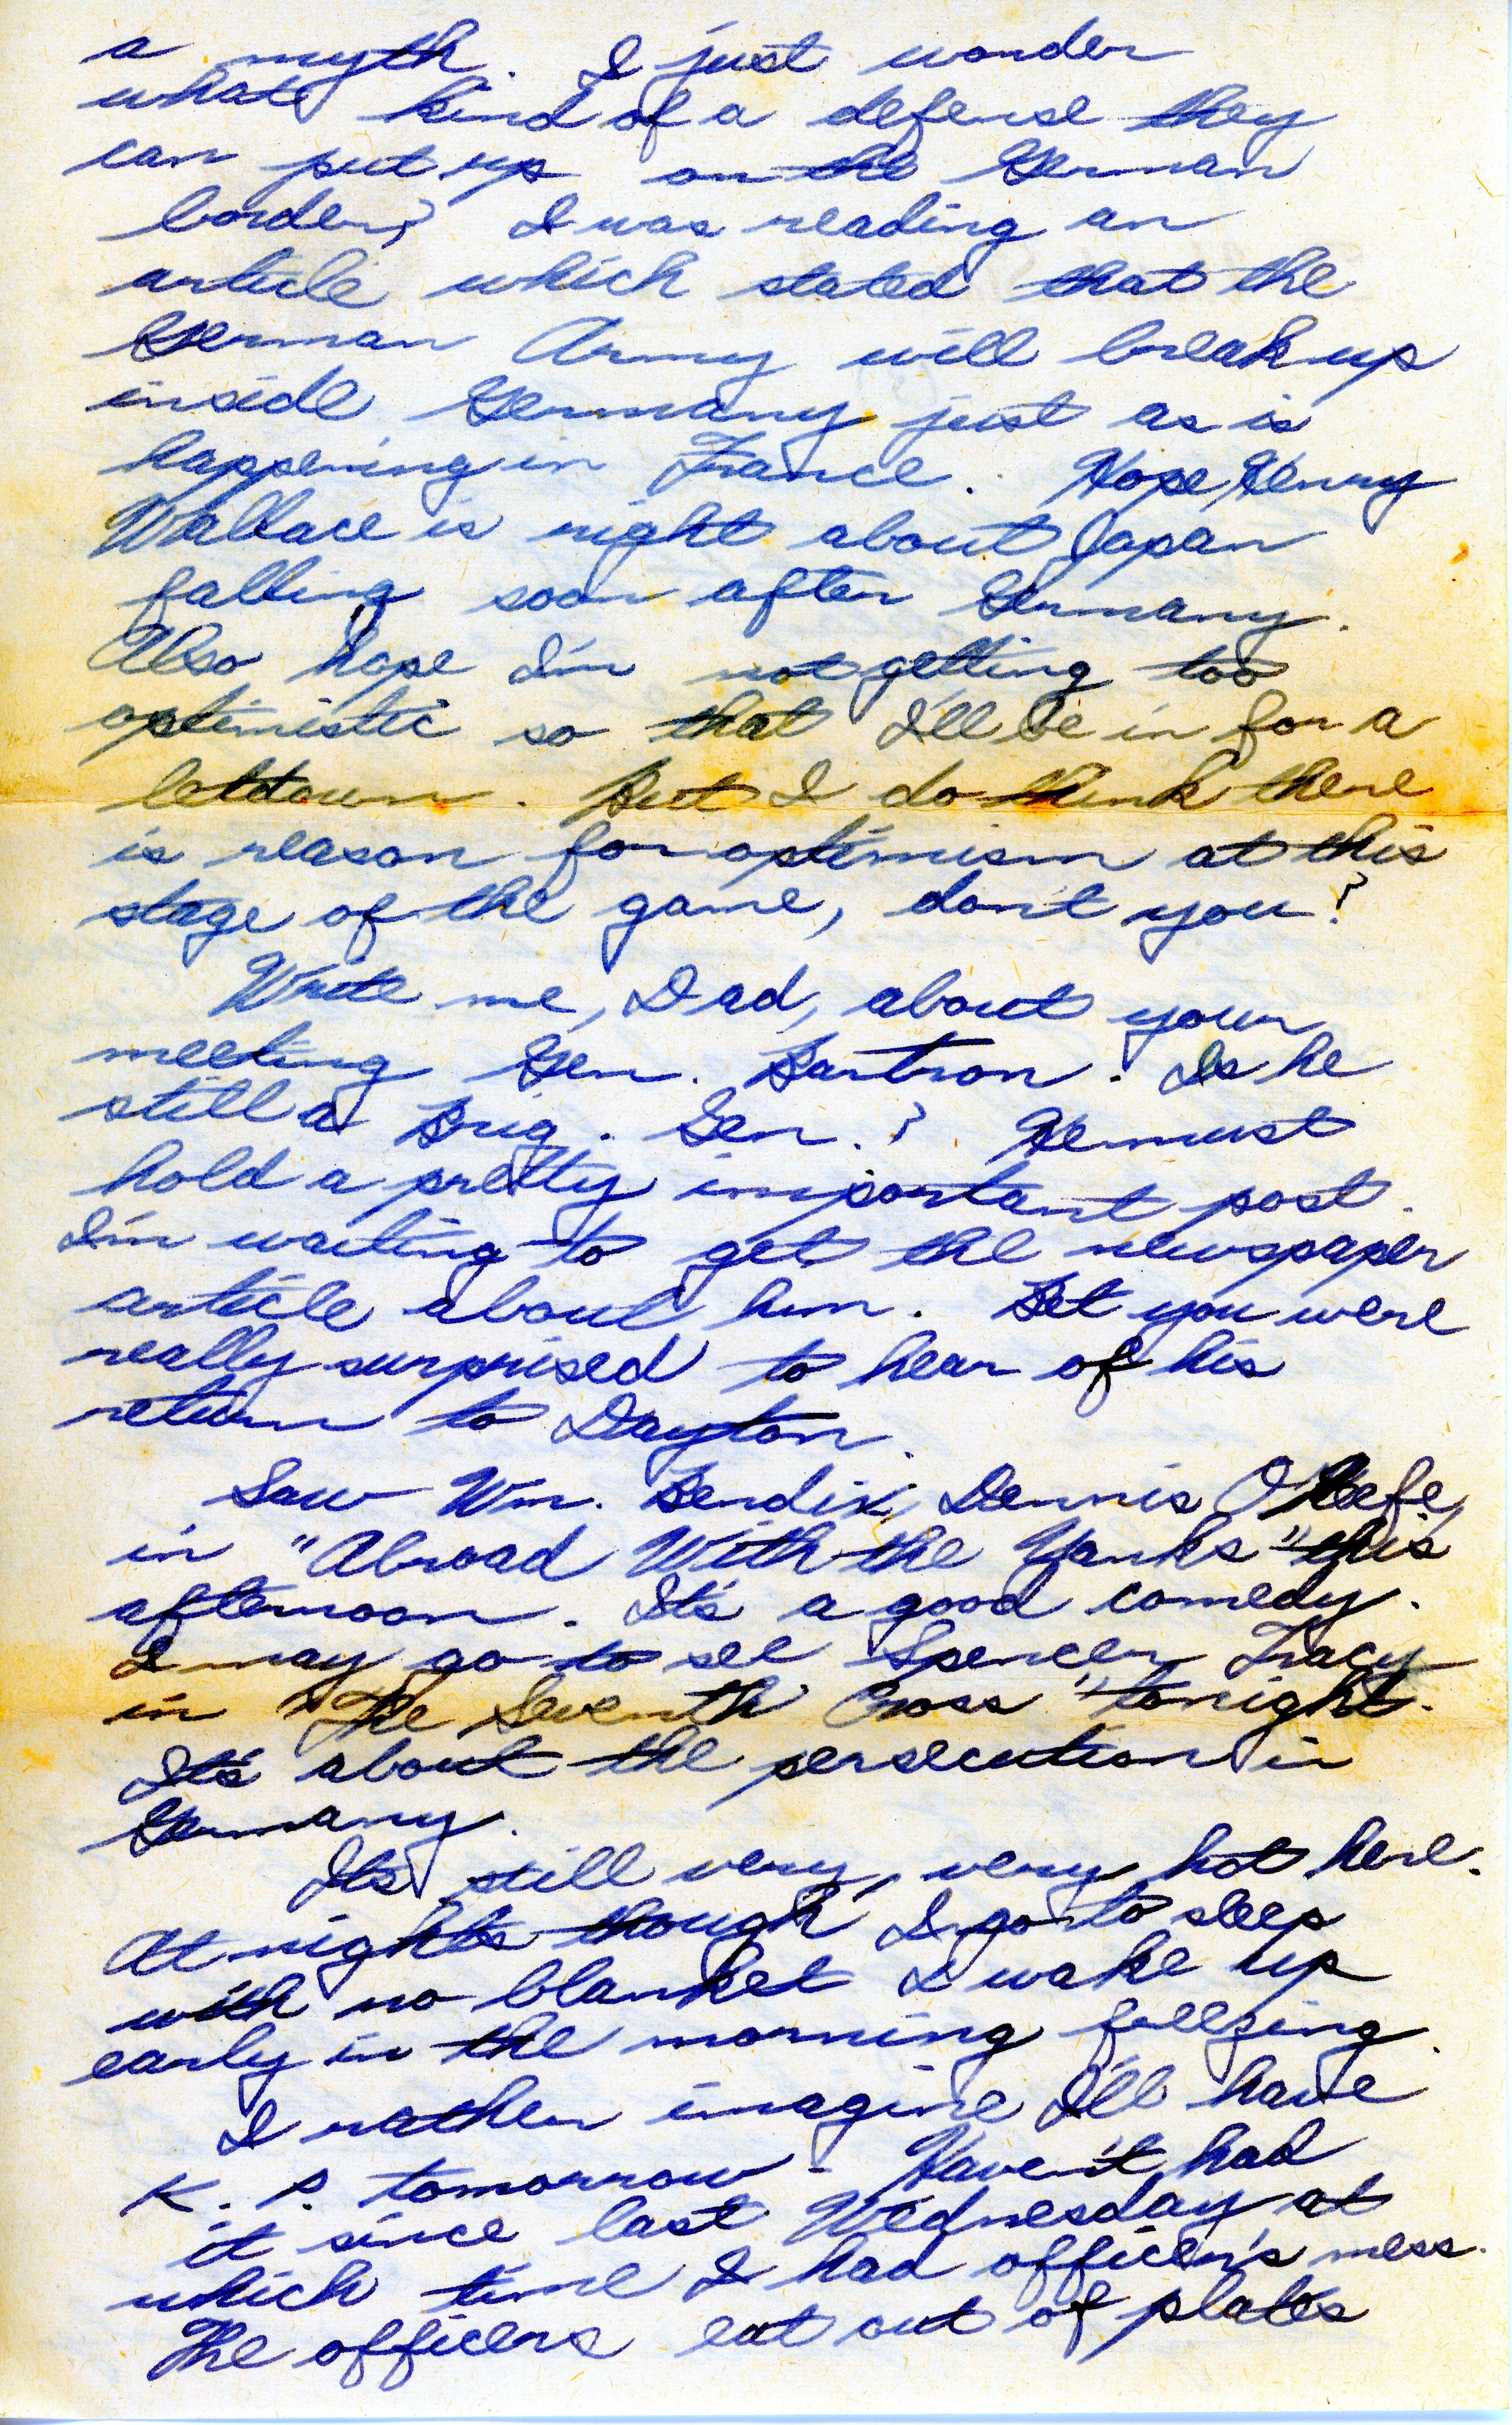 a myth. I just wonder
what kind of a defense they
can put up on the German
border? I was reading an
article which stated that the
German Army will break up
inside Germany just as is
happening in France. Hope Henry
Wallace is right about Japan
falling soon after Germany.
Also hope I'm not getting too
optimistic so that I'll be in for a
letdown. But I do think there
is reason for optimism at this
stage of the game, don't you?
Write me, Dad, about your
meeting Gen. Bartron. Is he
still a Brig. Gen.? He must
hold a pretty important post.
I'm waiting to get the newspaper
article about him. Bet you were
really surprised to hear of his
return to Dayton.
Saw Wm. Bendix, Dennis O'Keefe,
in "Abroad With the Yanks" this
afternoon. It's a good comedy.
I may go to see Spencer Tracy
in "The Seventh Cross" tonight.
It's about the persecution in
Germany.
It's still very, very hot here.
At nights though I go to sleep
with no blanket I wake up
early in the morning freezing.
I rather imagine I'll have
K. P. tomorrow - Haven't had
it since last Wednesday at
which time I had officer's mess.
The officers eat out of plates